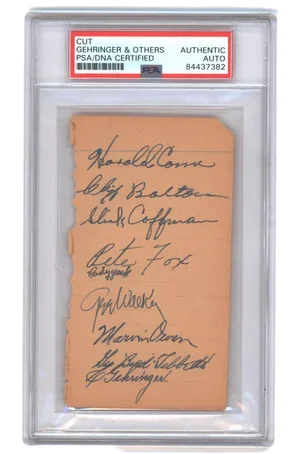 CUT
GEHRINGER & OTHERS
PSA/DNA CERTIFIED
AUTHENTIC
AUTO
84437382
PSA
Harold
Clif Bolton
Slick Coffman
Pete Fox
Gee Walker
Marvin Owen
Birdie Tebbetts
C Gehringer